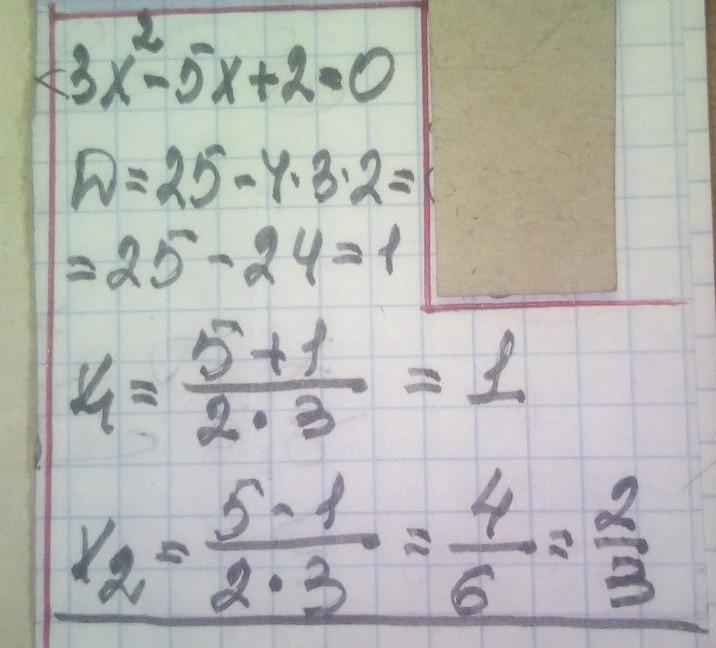 3x²-5x+2=0
D=25-4·3·2=
=25-24=1
x₁=(5+1)/(2·3)=1
x₂=(5-1)/(2·3)=4/6=2/3